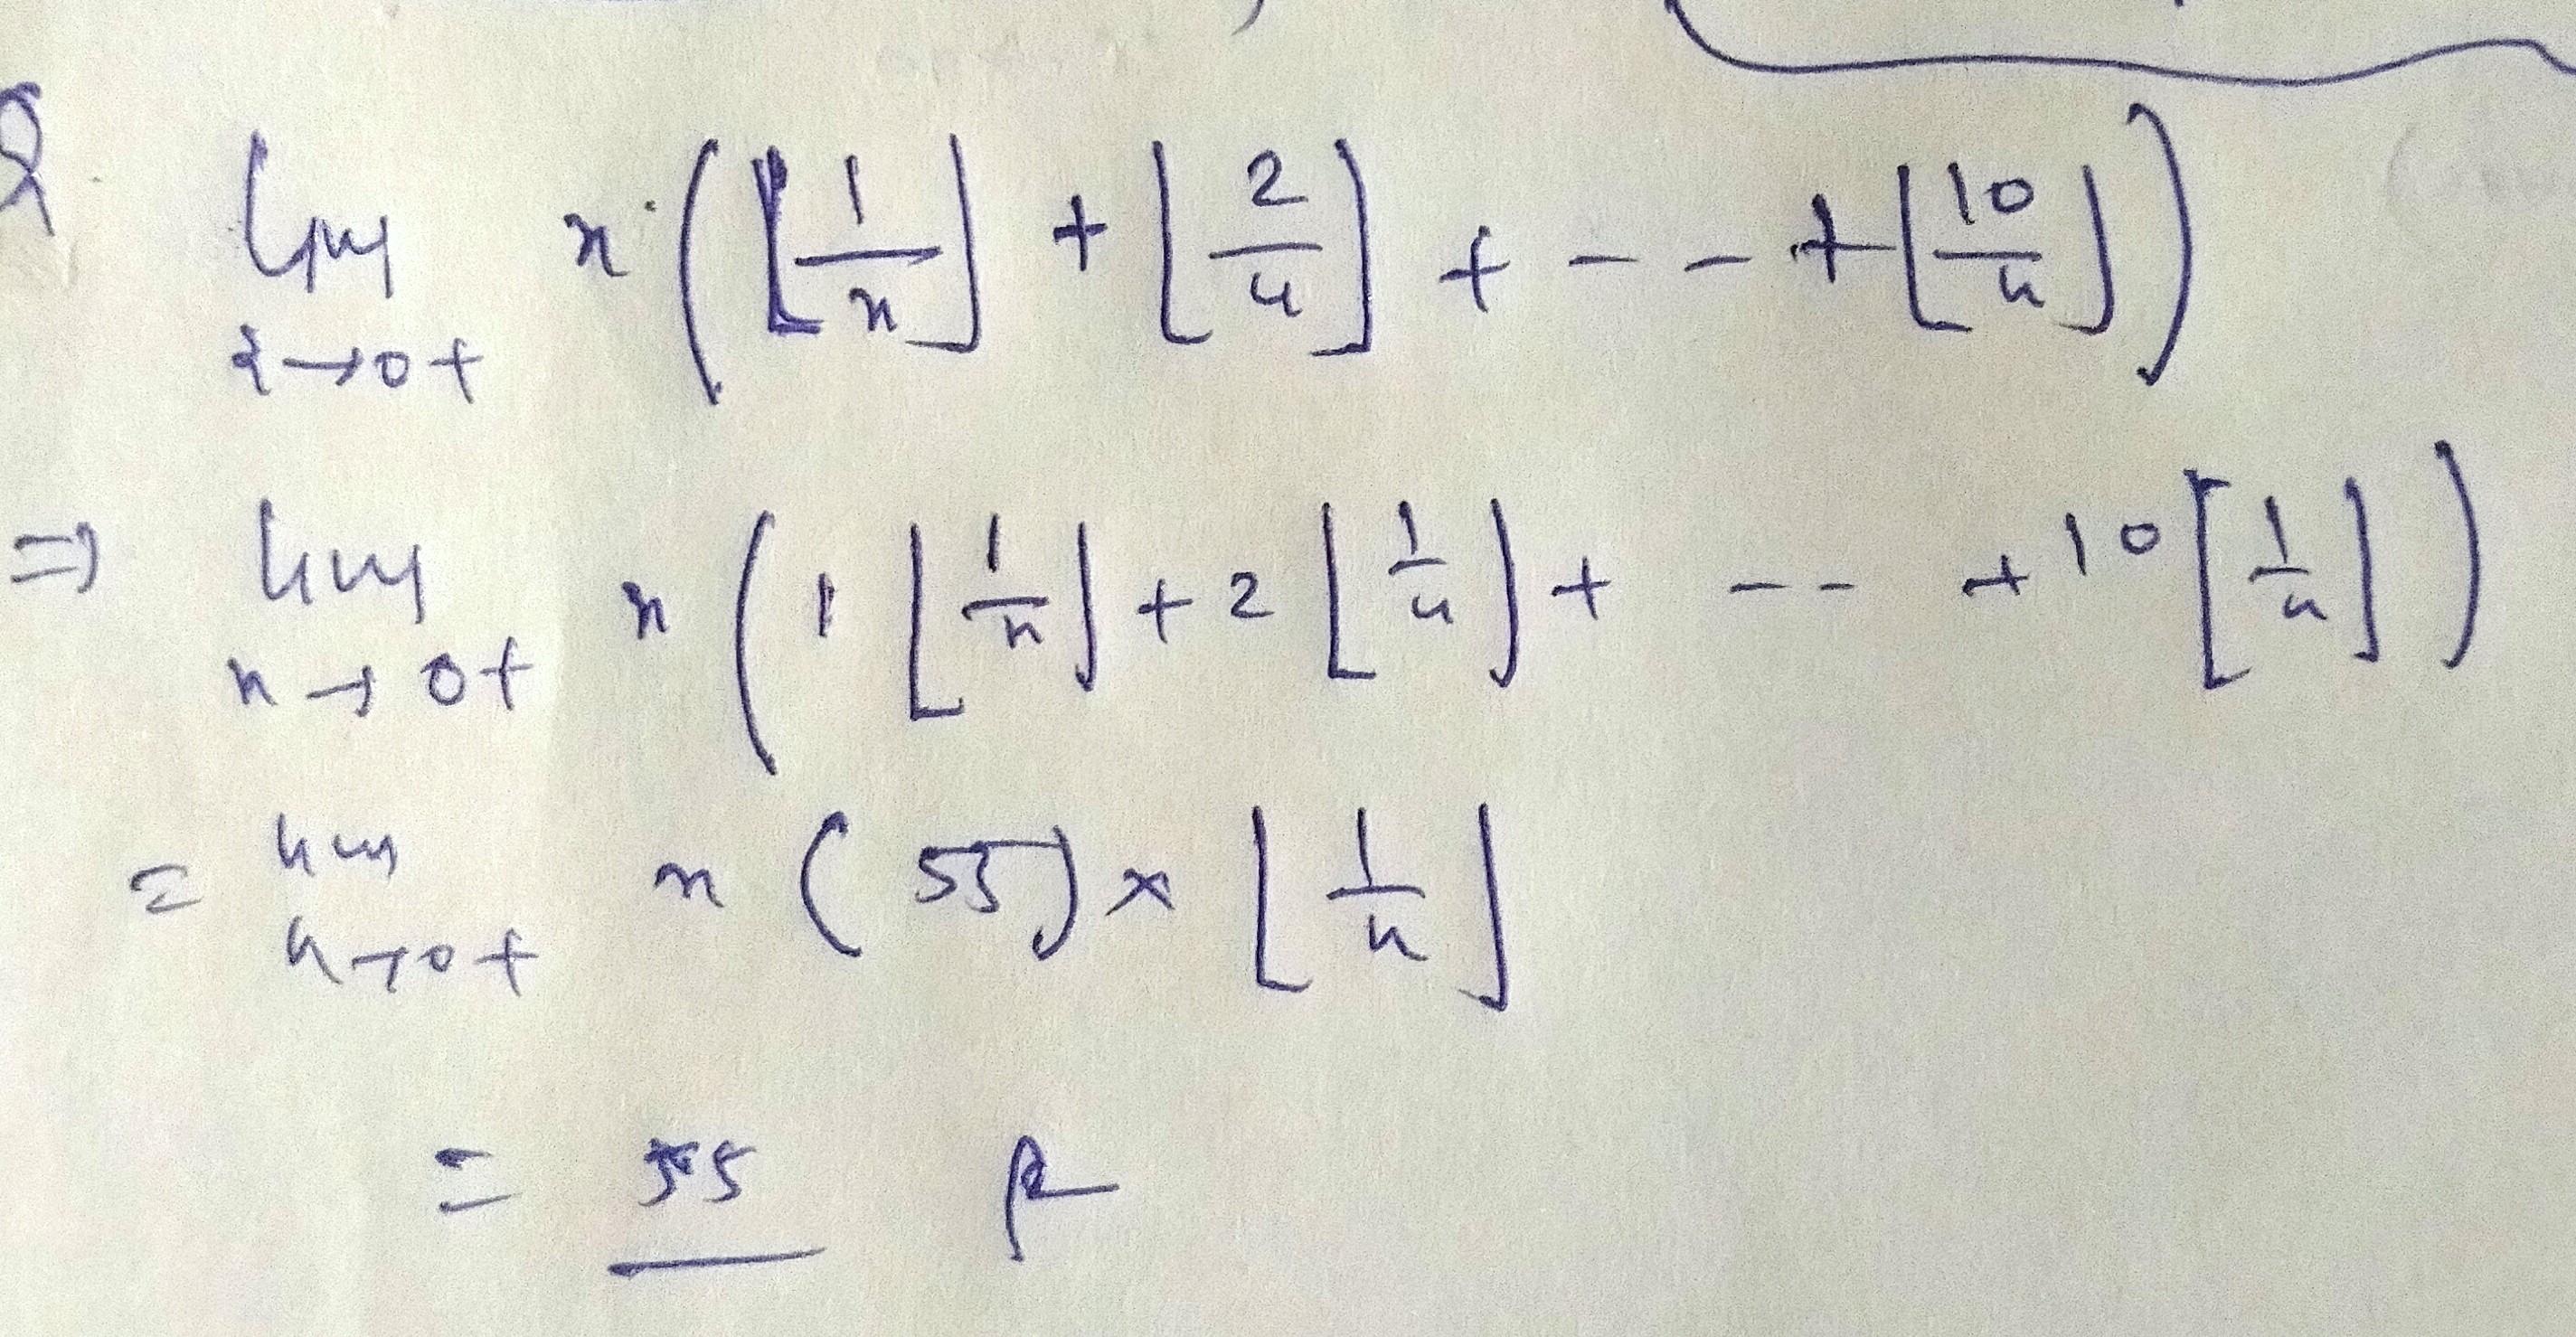 Q. lim x→0+ x (⌊1/x⌋ + ⌊2/x⌋ + -- + ⌊10/x⌋)
⇒ lim x→0+ x (1 ⌊1/x⌋ + 2 ⌊1/x⌋ + -- + 10 [1/x])
= lim x→0+ x (55) × ⌊1/x⌋
= 55